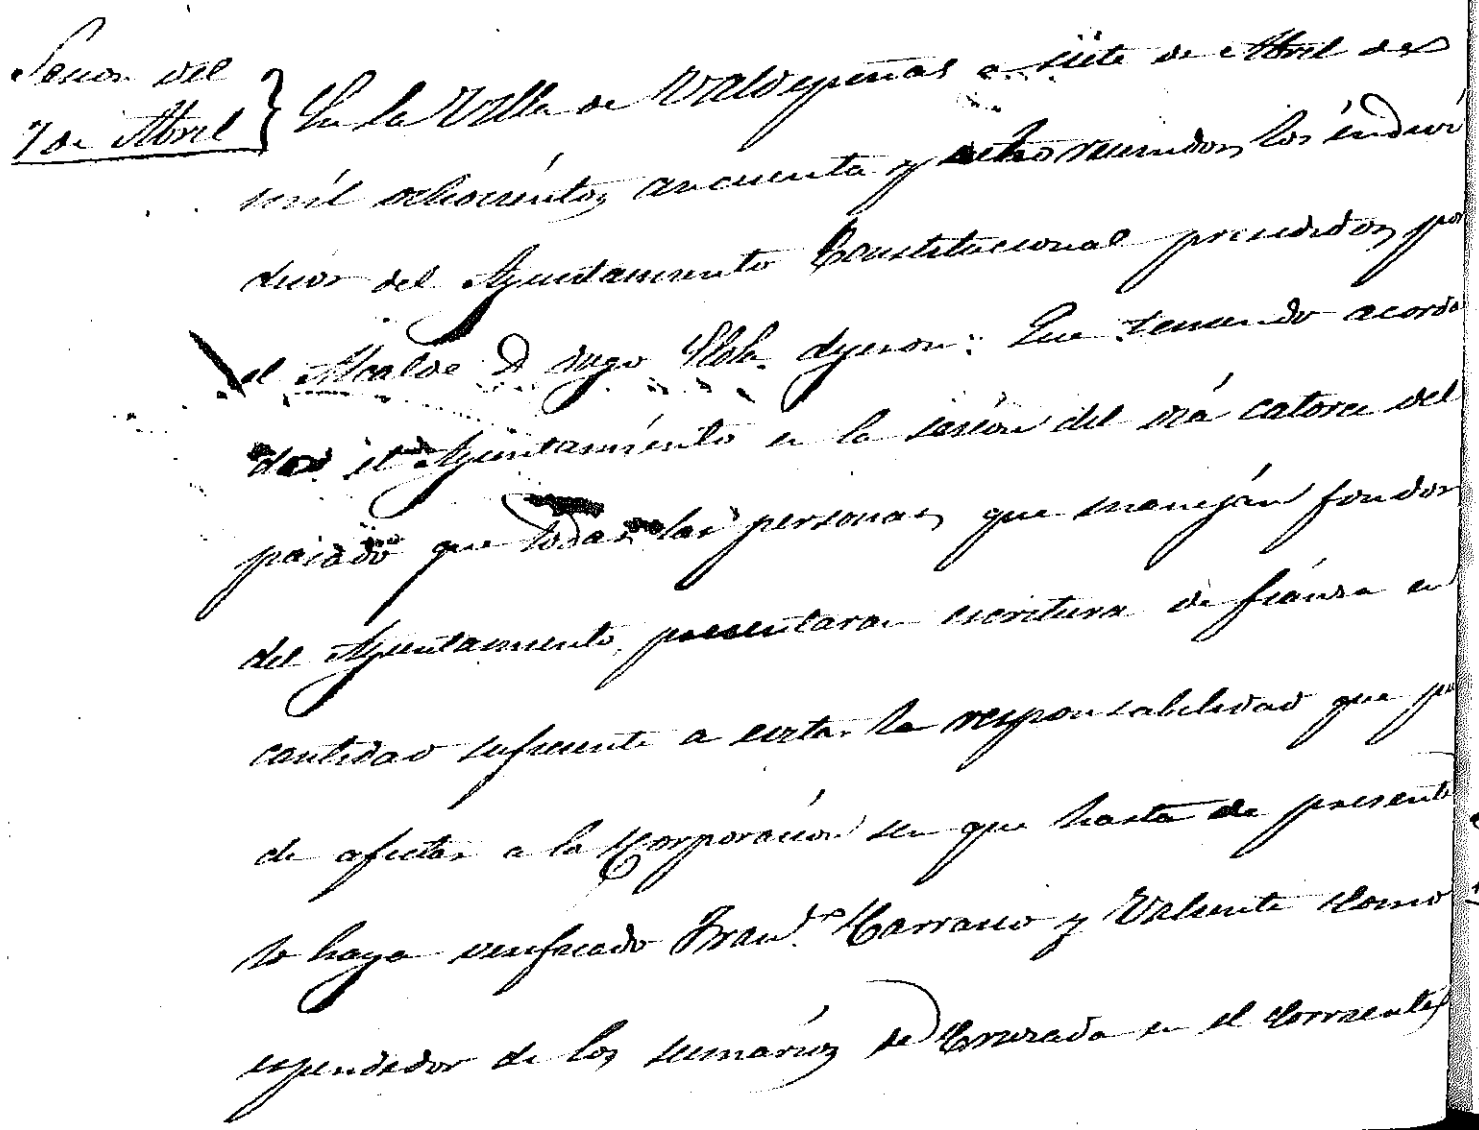 Sesion del
7 de Abril
En la Villa de Valdepeñas a siete de Abril de
mil ochocientos cincuenta y ocho reunidos los indivi
duos del Ayuntamiento Constitucional presididos por
el Alcalde D. Diego dijeron: Que teniendo acorda
do el Ayuntamiento en la sesion del dia catorce del
pasado que todas las personas que manejan fondos
del Ayuntamiento, presentaran escritura de fianza en
cantidad suficiente a evitar la responsabilidad que pu
de afectar a la Corporacion sin que hasta de presente
lo haya verificado Fran.co Carrasco y Valiente como
espendedor de los sumarios de Cruzada en el corriente